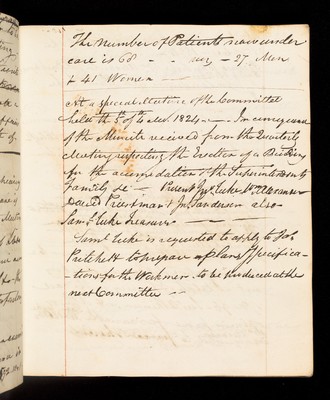 The Number of Patients now under
care is 68 - - viz - 27 Men
& 41 Women
At a special Meeting of the Committee
held the 5th of 4 mo. 1824 - In consequence
of the Minute received from the Quarterly
Meeting respecting the Erection of a Building
for the accomodation of the Superintendents
Family &c - Present Wm Tuke Wm Alexander
David Priestman & Jn Sanderson also
Saml Tuke Treasurer
Saml Tuke is requested to apply to
Pritchett to prepare a Plan & Specifica-
-tions for the Workmen to be produced at the
next Committee